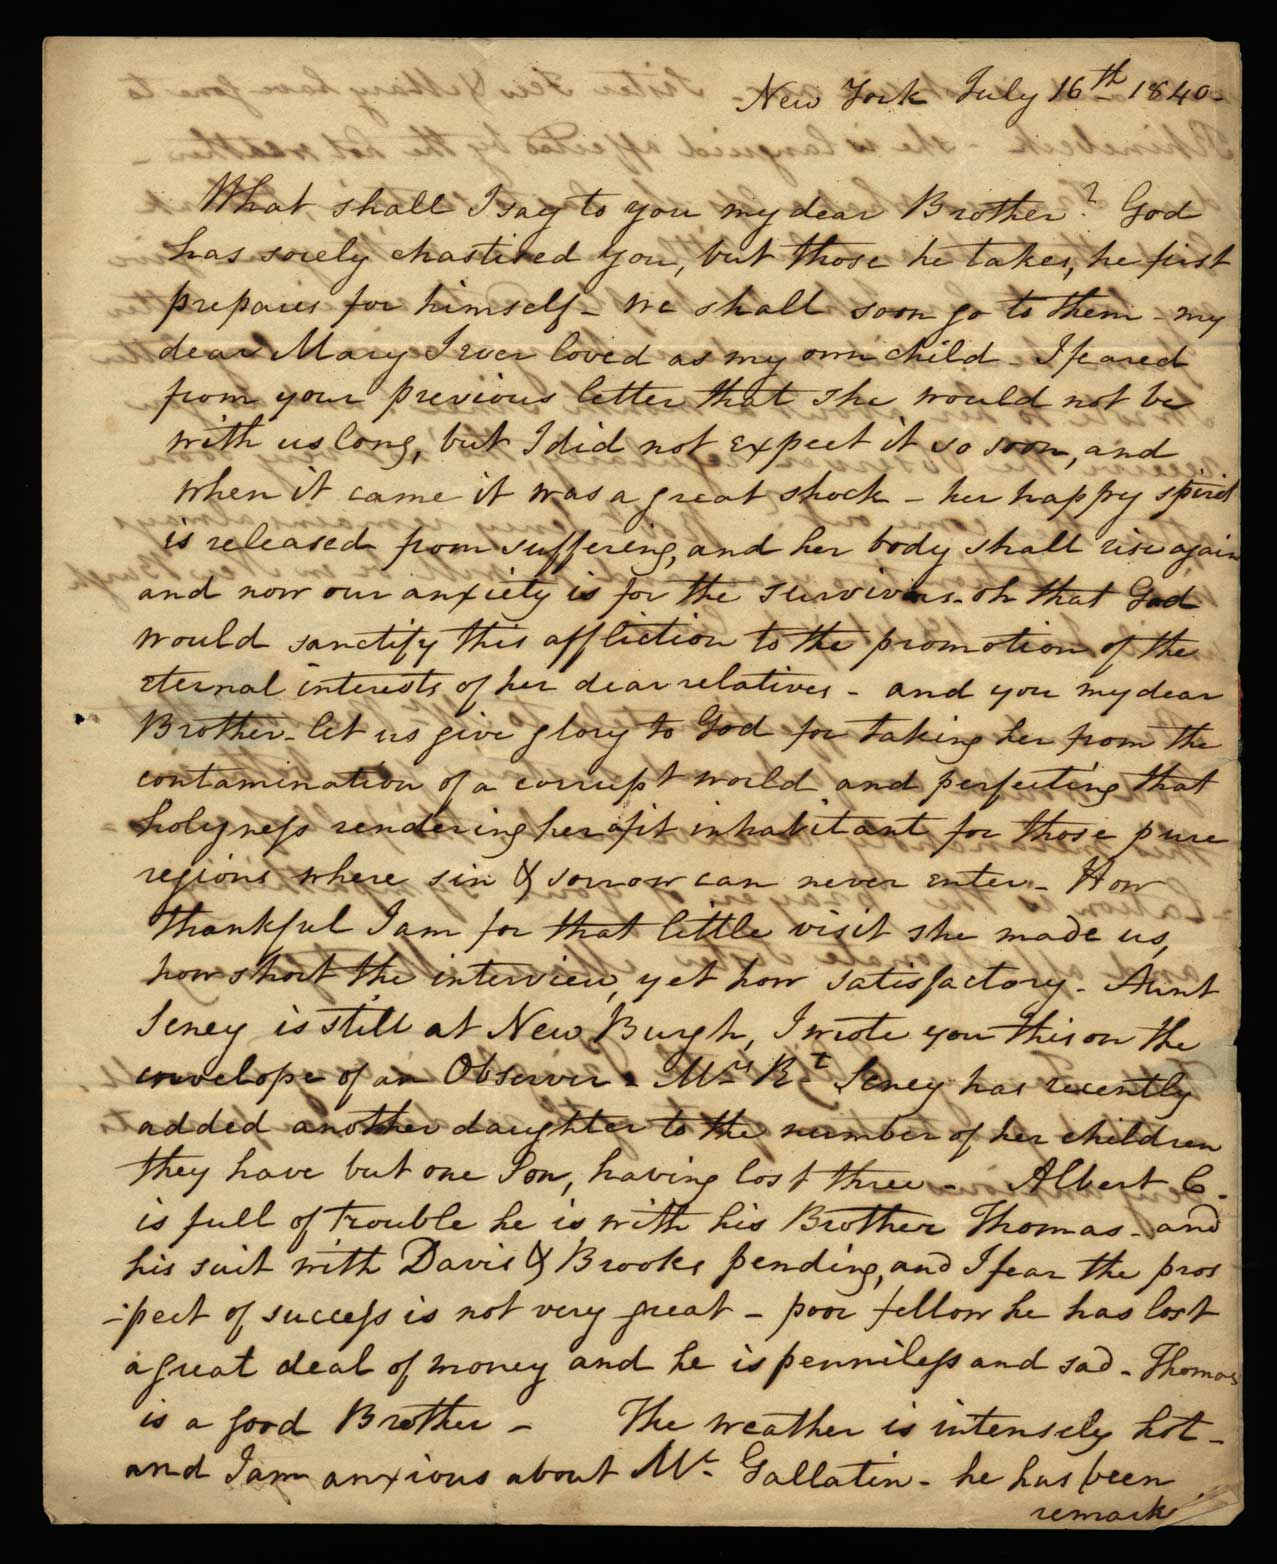 New York July 16th 1840-
What shall I say to you my dear Brother? God
has sorely chastised you, but those he takes, he first
prepares for himself- we shall soon go to them - my
dear Mary I ever loved as my own child - I feared
from your previous letter that she would not be
with us long, but I did not expect it so soon, and
when it came it was a great shock - her happy spirit
is released from suffering, and her body shall rise again
and now our anxiety is for the survivors- oh that God
would sanctify this affliction to the promotion of the
eternal interests of her dear relatives - and you my dear
Brother- let us give glory to God for taking her from the
contamination of a corrupt world and perfecting that
holyness rendering her a fit inhabitant for those pure
regions where sin & sorrow can never enter - How
thankful I am for that little visit she made us,
how short the interview, yet how satisfactory - Aunt
Seney is still at New Burgh, I wrote you this on the
envelope of an Observer - Mrs Rt Seney has recently
added another daughter to the number of her children
they have but one Son, having lost three - Albert C.
is full of trouble he is with his Brother Thomas - and
his suit with Davis & Brooks pending, and I fear the pros
-pect of success is not very great - poor fellow he has lost
a great deal of money and he is penniless and sad - Thomas
is a good Brother - The weather is intensely hot -
and I am anxious about Mr Gallatin - he has been
remark